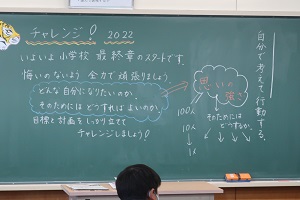 チャレンジ! 2022
いよいよ小学校 最終章のスタートです。
悔いのないよう 全力で頑張りましょう。
どんな自分になりたいのか。
そのためにはどうすればよいのか。
目標と計画をしっかり立てて
チャレンジしましょう!
自分で考えて行動する。
思いの強さ
100人
10人
1人
そのためには
どうするか。